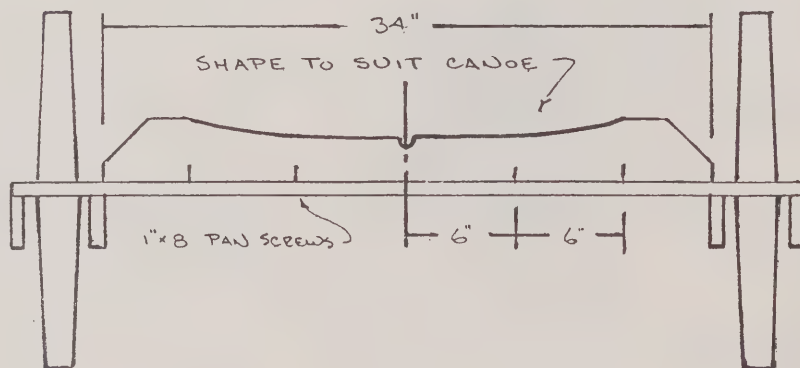 34"
SHAPE TO SUIT CANOE
1"x8 PAN SCREWS
6" 6"